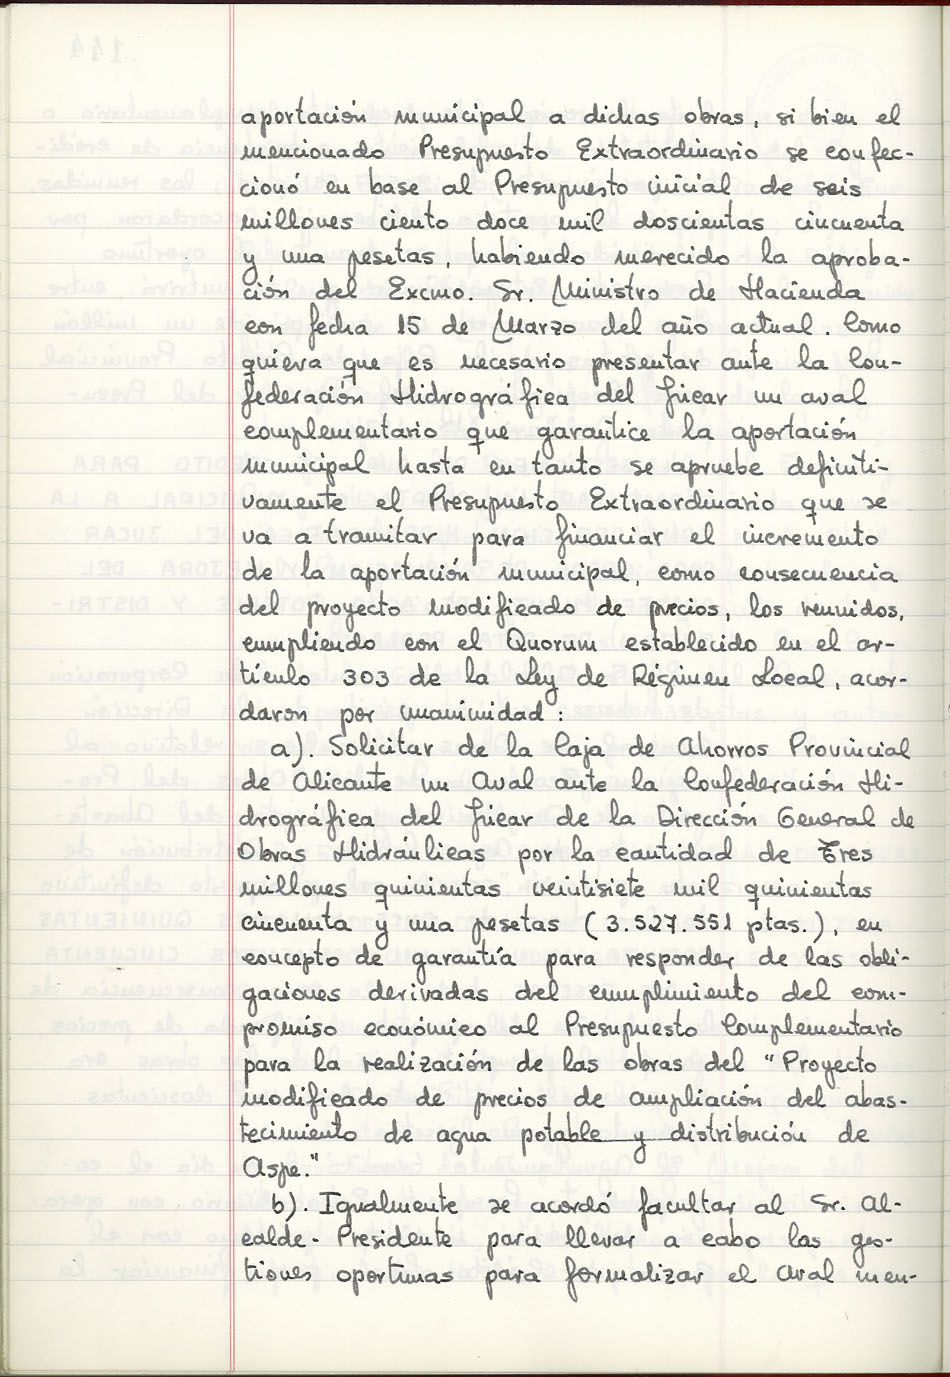 aportación municipal a dichas obras, si bien el
mencionado Presupuesto Extraordinario se confec-
cionó en base al Presupuesto inicial de seis
millones ciento doce mil doscientas cincuenta
y una pesetas, habiendo merecido la aproba-
ción del Excmo. Sr. Ministro de Hacienda
con fecha 15 de Marzo del año actual. Como
quiera que es necesario presentar ante la Con-
federación Hidrográfica del Júcar un aval
complementario que garantice la aportación
municipal hasta en tanto se apruebe definiti-
vamente el Presupuesto Extraordinario que se
va a tramitar para financiar el incremento
de la aportación municipal, como consecuencia
del proyecto modificado de precios, los reunidos,
cumpliendo con el Quorum establecido en el ar-
tículo 303 de la Ley de Régimen Local, acor-
daron por unanimidad:
a). Solicitar de la Caja de Ahorros Provincial
de Alicante un Aval ante la Confederación Hi-
drográfica del Júcar de la Dirección General de
Obras Hidráulicas por la cantidad de Tres
millones quinientas veintisiete mil quinientas
cincuenta y una pesetas (3.527.551 ptas.), en
concepto de garantía para responder de las obli-
gaciones derivadas del cumplimiento del com-
promiso económico al Presupuesto Complementario
para la realización de las obras del "Proyecto
modificado de precios de ampliación del abas-
tecimiento de agua potable y distribución de
Aspe."
b). Igualmente se acordó facultar al Sr. Al-
calde-Presidente para llevar a cabo las ges-
tiones oportunas para formalizar el aval men-